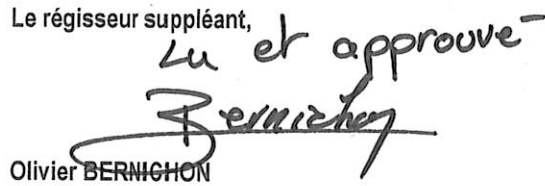 Le régisseur suppléant,
Lu et approuvé
Bernichon
Olivier BERNICHON